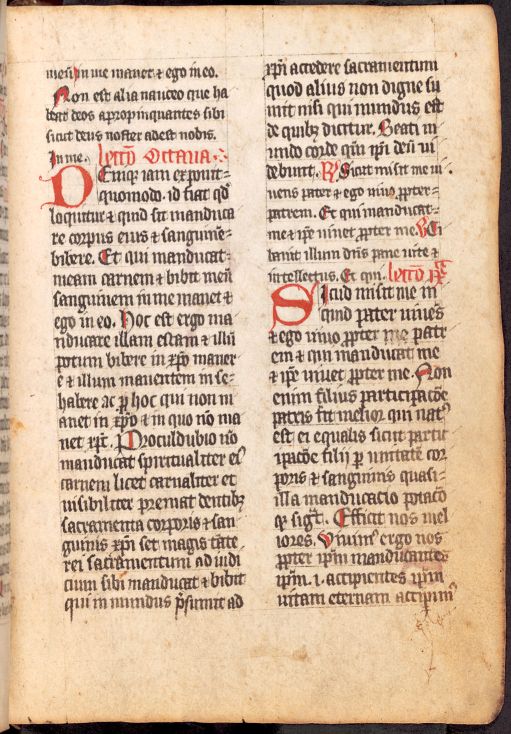 meū in me manet ⁊ ego in eo.
Non est alia natıo que ha
beat deos appropinquantes sibi
sicut deus noster adest nobis.
In me. lectō Octaua
Deniqꝫ iam exponit
quomodo id fiat qđ
loquitur ⁊ quid sit manduca
re corpus eius ⁊ sanguinē
bibere. Et qui manducat
meam carnem ⁊ bibit meū
sanguinem in me manet ⁊
ego in eo. Hoc est ergo ma
nducare illam escam ⁊ illū
potum bibere in xp̄o maner
e ⁊ illum manentem in se
habere ac ꝑ hoc qui non m
anet in xp̄o ⁊ in quo nō ma
net xp̄c. Proculdubio nō
manducat spiritualiter eiꝰ
carnem licet carnaliter et
uisibiliter premat dentibꝫ
sacramenta corporis ⁊ san
guinis xp̄i set magis tāte
rei sacramentum ad iudi
cium sibi manducat ⁊ bibit
qui in mundus p̄sumit ad
xp̄i accedere sacramentum
quod alius non digne su
mit nisi qui mundus est
de quibꝫ dicitur. Beati m
undo corde qm̄ ip̄i deū ui
debunt. R Sicut misit me ui
uens pater ⁊ ego uiuo ꝓpter
patrem. Et qui manducat
me ⁊ ip̄e uiuet ꝓpter me. V Ci
bauit illum dn̄s pane uite ⁊
intellectus. Et qui. lectō
Sicud misit me ui
uens pater uiues
⁊ ego uiuo ꝓpter me patr
em ⁊ qui manducat me
⁊ ip̄e uiuet ꝓpter me. Non
enim filius participacōe
patris fit melior qui natꝰ
est ei equalis sicut partic
ipacōe filij ꝑ unitatē cor
poris ⁊ sanguinis quasi
illa manducacio potacō
qꝫ sigt. Efficit nos mel
iores. Viuimꝰ ergo nos
ꝓpter ip̄m manducantes
ip̄m. i. accipientes ip̄m
uitam eternam accipimꝰ